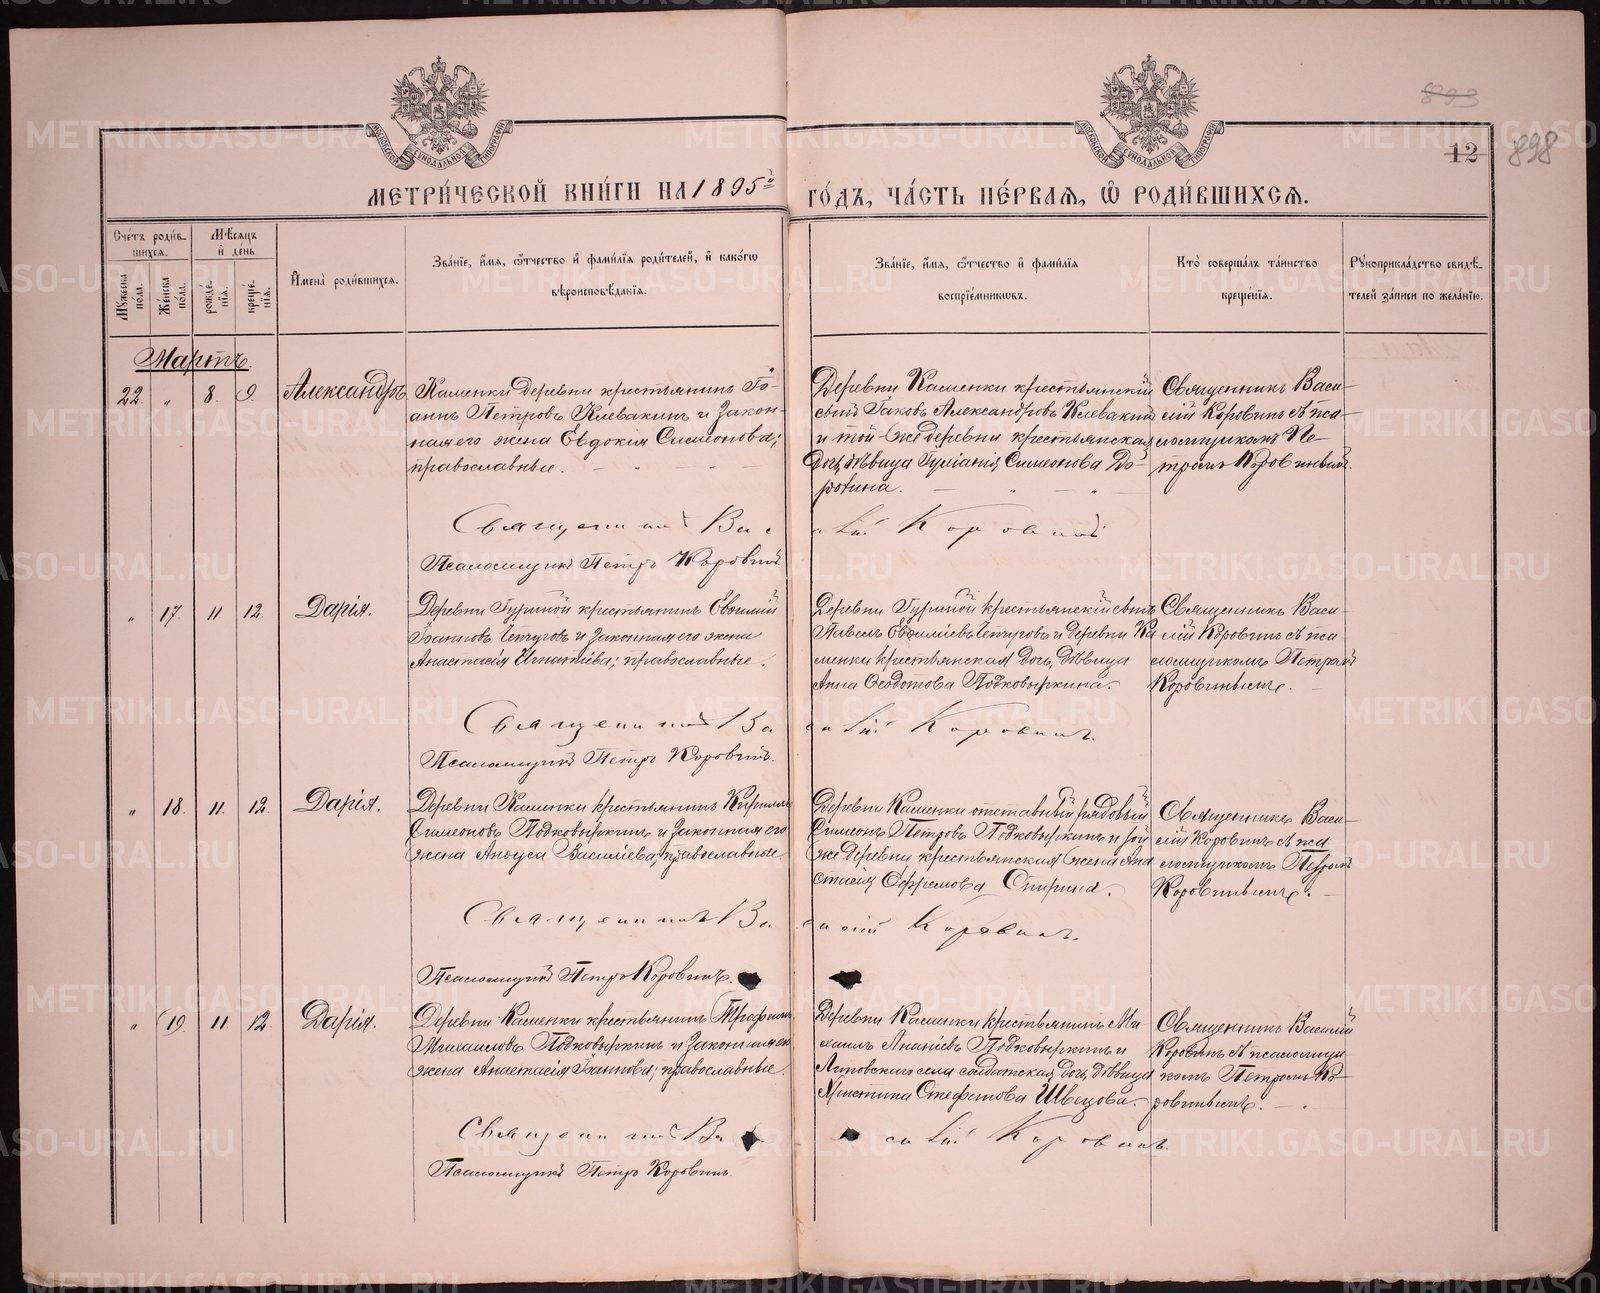 893
12 898
МЕТРИ́ЧЕСКОЙ КНИ́ГИ НА 1895й ГО́ДЪ, ЧА́СТЬ ПЕ́РВАЯ, Ѽ РОДИ́ВШИХСЯ.
Сче́тъ роди́вшихся.
Мꙋ́жеска по́ла.
Же́нска по́ла.
Мѣ́сяцъ и҆ де́нь
рожде́нїя.
креще́нїя.
И҆мена̀ роди́вшихся.
Зва́нїе, и҆́мя, ѻ҆́тчество и҆ фами́лїя роди́телей, и҆ како́гѡ
вѣроисповѣ́данїя.
Зва́нїе, и҆́мя, ѻ҆́тчество и҆ фами́лїя
воспрїе́мникѡвъ.
Кто̀ соверша́лъ та́инство
креще́нїя.
Рꙋкоприкла́дство свидѣ́-
телей за́писи по жела́нїю.
Мартъ.
22. " 8. 9. Александръ
Каменки деревни крестьянинъ Іо-
аннъ Петровъ Клевакинъ и закон-
ная его жена Евдокія Симеонова;
православные.
Деревни Каменки крестьянскій
сынъ Іаковъ Александровъ Клевакинъ
и той же деревни крестьянская
дочь, дѣвица Іуліанія Симеонова До-
рохина.
Священникъ Васи-
лій Коровинъ съ пса-
ломщикомъ Пе-
тромъ Коровинымъ.
Священникъ Василій Коровинъ
Псаломщикъ Петръ Коровинъ
" 17. 11 12. Дарія.
Деревни Гуриной крестьянинъ Евѳимій
Іоанновъ Чепчуговъ и законная его жена
Анастасія Игнатіева; православные.
Деревни Гуриной крестьянскій сынъ
Павелъ Евѳиміевъ Чепчуговъ и деревни Ка-
менки крестьянская дочь, дѣвица
Анна Ѳеодотова Подковыркина.
Священникъ Васи-
лій Коровинъ съ пса-
ломщикомъ Петромъ
Коровинымъ.
Священникъ Василій Коровинъ.
Псаломщикъ Петръ Коровинъ.
" 18. 11. 12. Дарія.
Деревни Каменки крестьянинъ Кириллъ
Симеоновъ Подковыркинъ и законная его
жена Анѳуса Василіева, православные.
Деревни Каменки отставный рядовый
Симеонъ Петровъ Подковыркинъ и той
же деревни крестьянская жена Ана-
стасія Ефремова Спирина.
Священникъ Васи-
лій Коровинъ съ пса-
ломщикомъ Петромъ
Коровинымъ.
Священникъ Василій Коровинъ.
Псаломщикъ Петръ Коровинъ.
" 19. 11. 12. Дарія.
Деревни Каменки крестьянинъ Трофимъ
Михаиловъ Подковыркинъ и законная его
жена Анастасія Іоаннова; православные.
Деревни Каменки крестьянинъ Ми-
хаилъ Ананіевъ Подковыркинъ и
Липовскаго села солдатская дочь, дѣвица
Христина Стефанова Швецова.
Священникъ Василій
Коровинъ съ псаломщи-
комъ Петромъ Ко-
ровинымъ.
Священникъ Василій Коровинъ.
Псаломщикъ Петръ Коровинъ.
METRIKI.GASO-URAL.RU